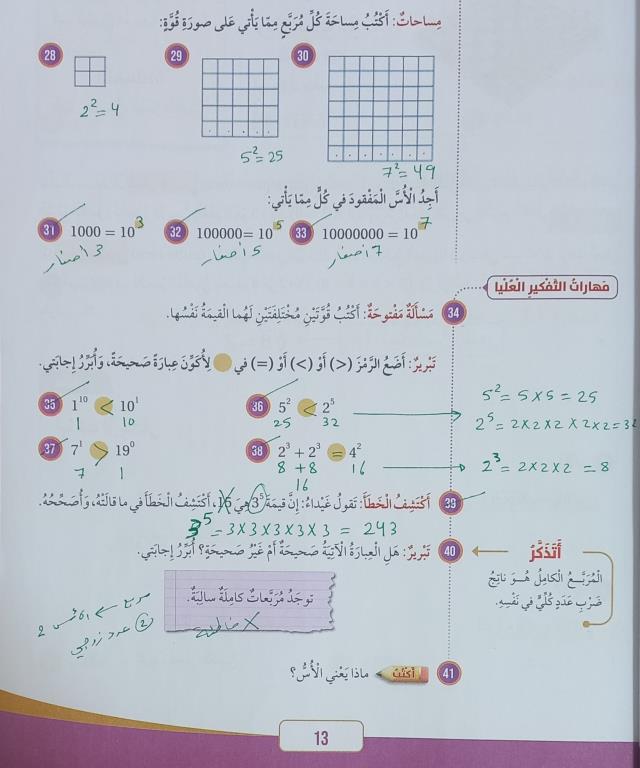 مِساحاتٌ: أَكْتُبُ مِساحَةَ كُلِّ مُرَبَّعٍ مِمّا يَأْتي عَلى صورَةِ قُوَّةٍ:
28 29 30
2² = 4
5² = 25
7² = 49
أَجِدُ الْأُسَّ الْمَفْقودَ في كُلٍّ مِمّا يَأْتي:
31 1000 = 10³ 32 100000 = 10⁵ 33 10000000 = 10⁷
3 اصفار 5 اصفار 7 اصفار
مَهاراتُ التَّفْكيرِ الْعُلْيا
34 مَسْأَلَةٌ مَفْتوحَةٌ: أَكْتُبُ قُوَّتَيْنِ مُخْتَلِفَتَيْنِ لَهُما الْقيمَةُ نَفْسُها.
تَبْريرٌ: أَضَعُ الرَّمْزَ (<) أَوْ (>) أَوْ (=) في لِأُكَوِّنَ عِبارَةً صَحيحَةً، وَأُبَرِّرُ إِجابَتي.
35 1¹⁰ < 10¹ 36 5² < 2⁵
1 10 25 32
5² = 5 × 5 = 25
2⁵ = 2 × 2 × 2 × 2 × 2 = 32
37 7¹ > 19⁰ 38 2³ + 2³ = 4²
7 1 8 + 8 16
16
2³ = 2 × 2 × 2 = 8
39 أَكْتَشِفُ الْخَطَأَ: تَقولُ غَيْداءُ: إِنَّ قيمَةَ 3⁵ هِيَ 15، أَكْتَشِفُ الْخَطَأَ في ما قالَتْهُ، وَأُصَحِّحُهُ.
3⁵ = 3 × 3 × 3 × 3 × 3 = 243
40 تَبْريرٌ: هَلِ الْعِبارَةُ الْآتِيَةُ صَحيحَةٌ أَمْ غَيْرُ صَحيحَةٍ؟ أُبَرِّرُ إِجابَتي.
أَتَذَكَّرُ
الْمُرَبَّعُ الْكامِلُ هُوَ ناتِجُ
ضَرْبِ عَدَدٍ كُلِّيٍّ في نَفْسِهِ.
توجَدُ مُرَبَّعاتٌ كامِلَةٌ سالِبَةٌ.
خاطئة
مربع ← الأس 2
2 عدد زوجي
41 أَكْتُبُ ماذا يَعْني الْأُسُّ؟
13